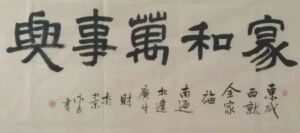 家和萬事興
東成
西就
全家
福
南通
北達
廣生
財
於
書